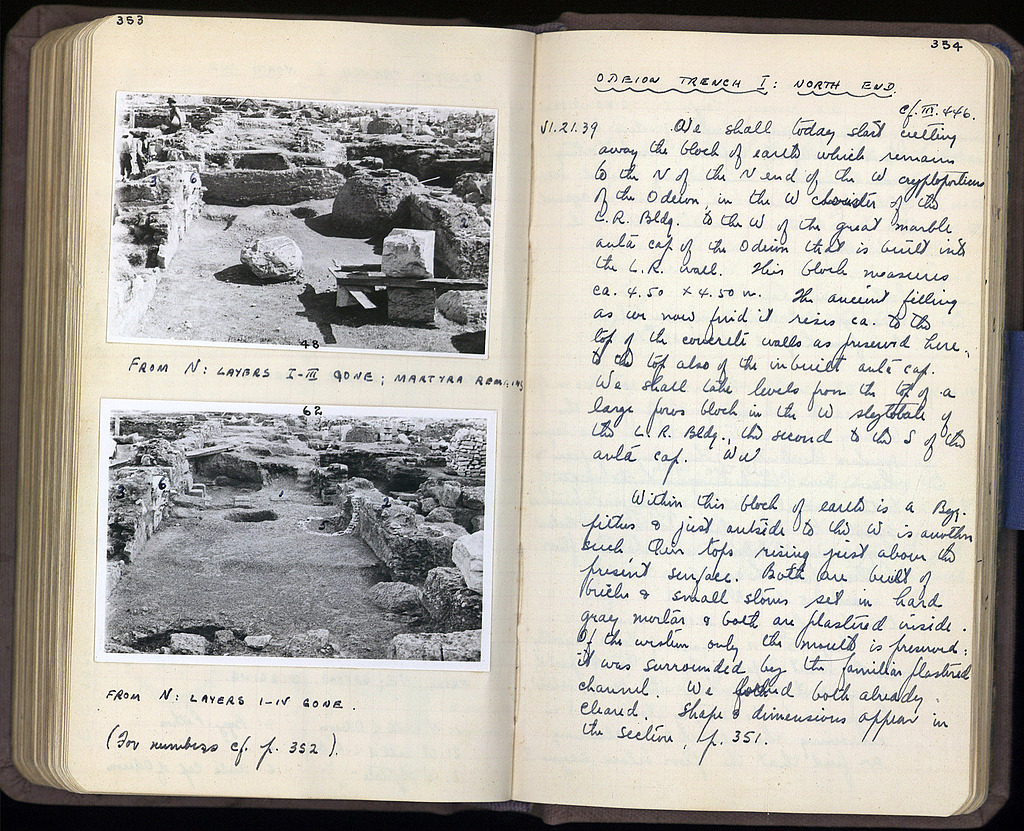 353
3
6
5
48
FROM N: LAYERS I-III GONE; MARTYRA REMAINS
62
3
6
5
2
FROM N: LAYERS I-IV GONE.
(For numbers cf. p. 352).
354
ODEION TRENCH I: NORTH END.
cf. III. 446.
VI.21.39 We shall today start cutting
away the block of earth which remains
to the N of the N end of the W cryptoporticus
of the Odeion, in the W of the
L.R. Bldg. to the W of the great marble
anta cap of the Odeion that is built into
the L.R. wall. This block measures
ca. 4.50 x 4.50 m. The ancient filling
as we now find it rises ca. to the
top of the concrete walls as preserved here,
to the top also of the inbuilt anta cap.
We shall take levels from the top of a
large poros block in the W stylobate of
the L.R. Bldg., the second to the S of the
anta cap.
Within this block of earth is a Byz.
pithos & just outside to the W is another
such their tops rising just above the
present surface. Both are built of
bricks & small stones set in hard
gray mortar & both are plastered inside.
Of the western only the mouth is preserved:
it was surrounded by the familiar plastered
channel. We found both already
cleared. Shape & dimensions appear in
the section, p. 351.